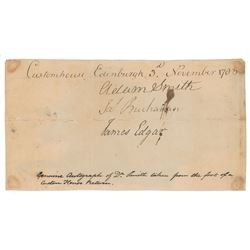 Customhouse, Edinburgh, 3d. November 178
Adam Smith
Jas Buchanan
James Edgar
Genuine Autograph of Dr. Smith taken from the foot of a
Custom House Return.